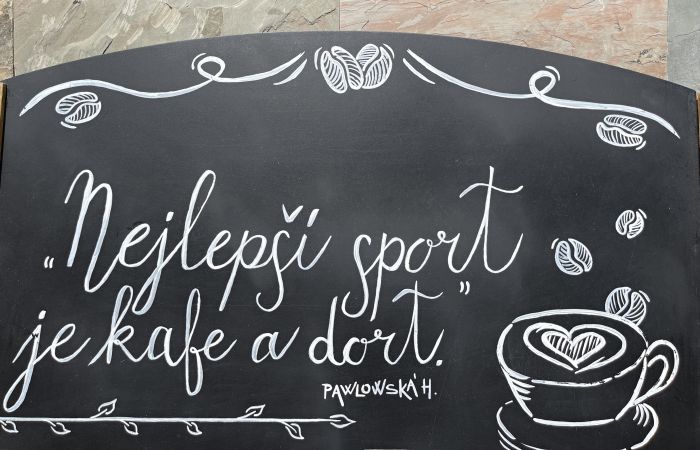 „Nejlepší sport
je kafe a dort.”
PAWLOWSKÁ H.